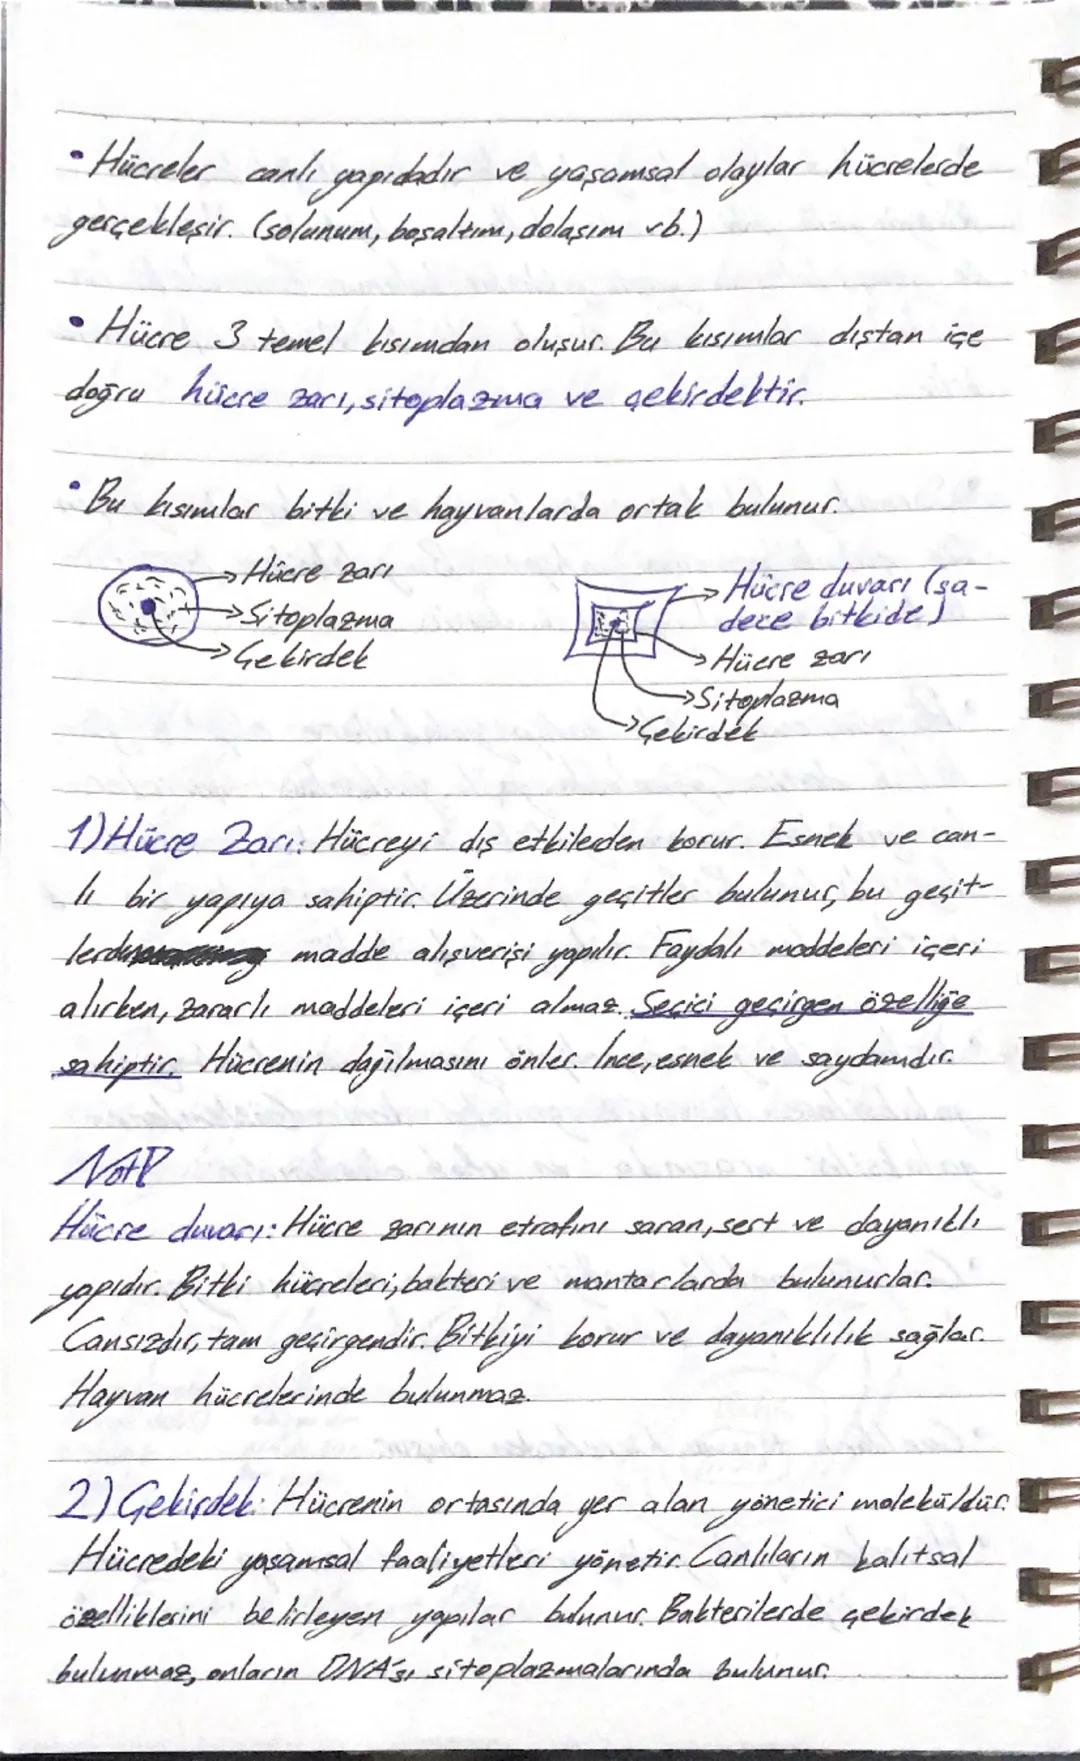 • Hücreler canlı yapıdadır ve yaşamsal olaylar hücrelerde
gerçekleşir. (solunum, boşaltım, dolaşım vb.)
• Hücre 3 temel kısımdan oluşur. Bu kısımlar dıştan içe
doğru hücre zarı, sitoplazma ve çekirdektir.
• Bu kısımlar bitki ve hayvanlarda ortak bulunur.
→ Hücre zarı
→ Sitoplazma
→ Çekirdek
→ Hücre duvarı (sa-
dece bitkide)
→ Hücre zarı
→ Sitoplazma
→ Çekirdek
1) Hücre Zarı: Hücreyi dış etkilerden korur. Esnek ve can-
lı bir yapıya sahiptir. Üzerinde geçitler bulunur, bu geçit-
lerden madde alışverişi yapılır. Faydalı maddeleri içeri
alırken, zararlı maddeleri içeri almaz. Seçici geçirgen özelliğe
sahiptir. Hücrenin dağılmasını önler. İnce, esnek ve saydamdır.
Not!
Hücre duvarı: Hücre zarının etrafını saran, sert ve dayanıklı
yapıdır. Bitki hücreleri, bakteri ve mantarlarda bulunurlar.
Cansızdır, tam geçirgendir. Bitkiyi korur ve dayanıklılık sağlar.
Hayvan hücrelerinde bulunmaz.
2) Çekirdek: Hücrenin ortasında yer alan yönetici moleküldür.
Hücredeki yaşamsal faaliyetleri yönetir. Canlıların kalıtsal
özelliklerini belirleyen yapılar bulunur. Bakterilerde çekirdek
bulunmaz, onların DNA'sı sitoplazmalarında bulunur.